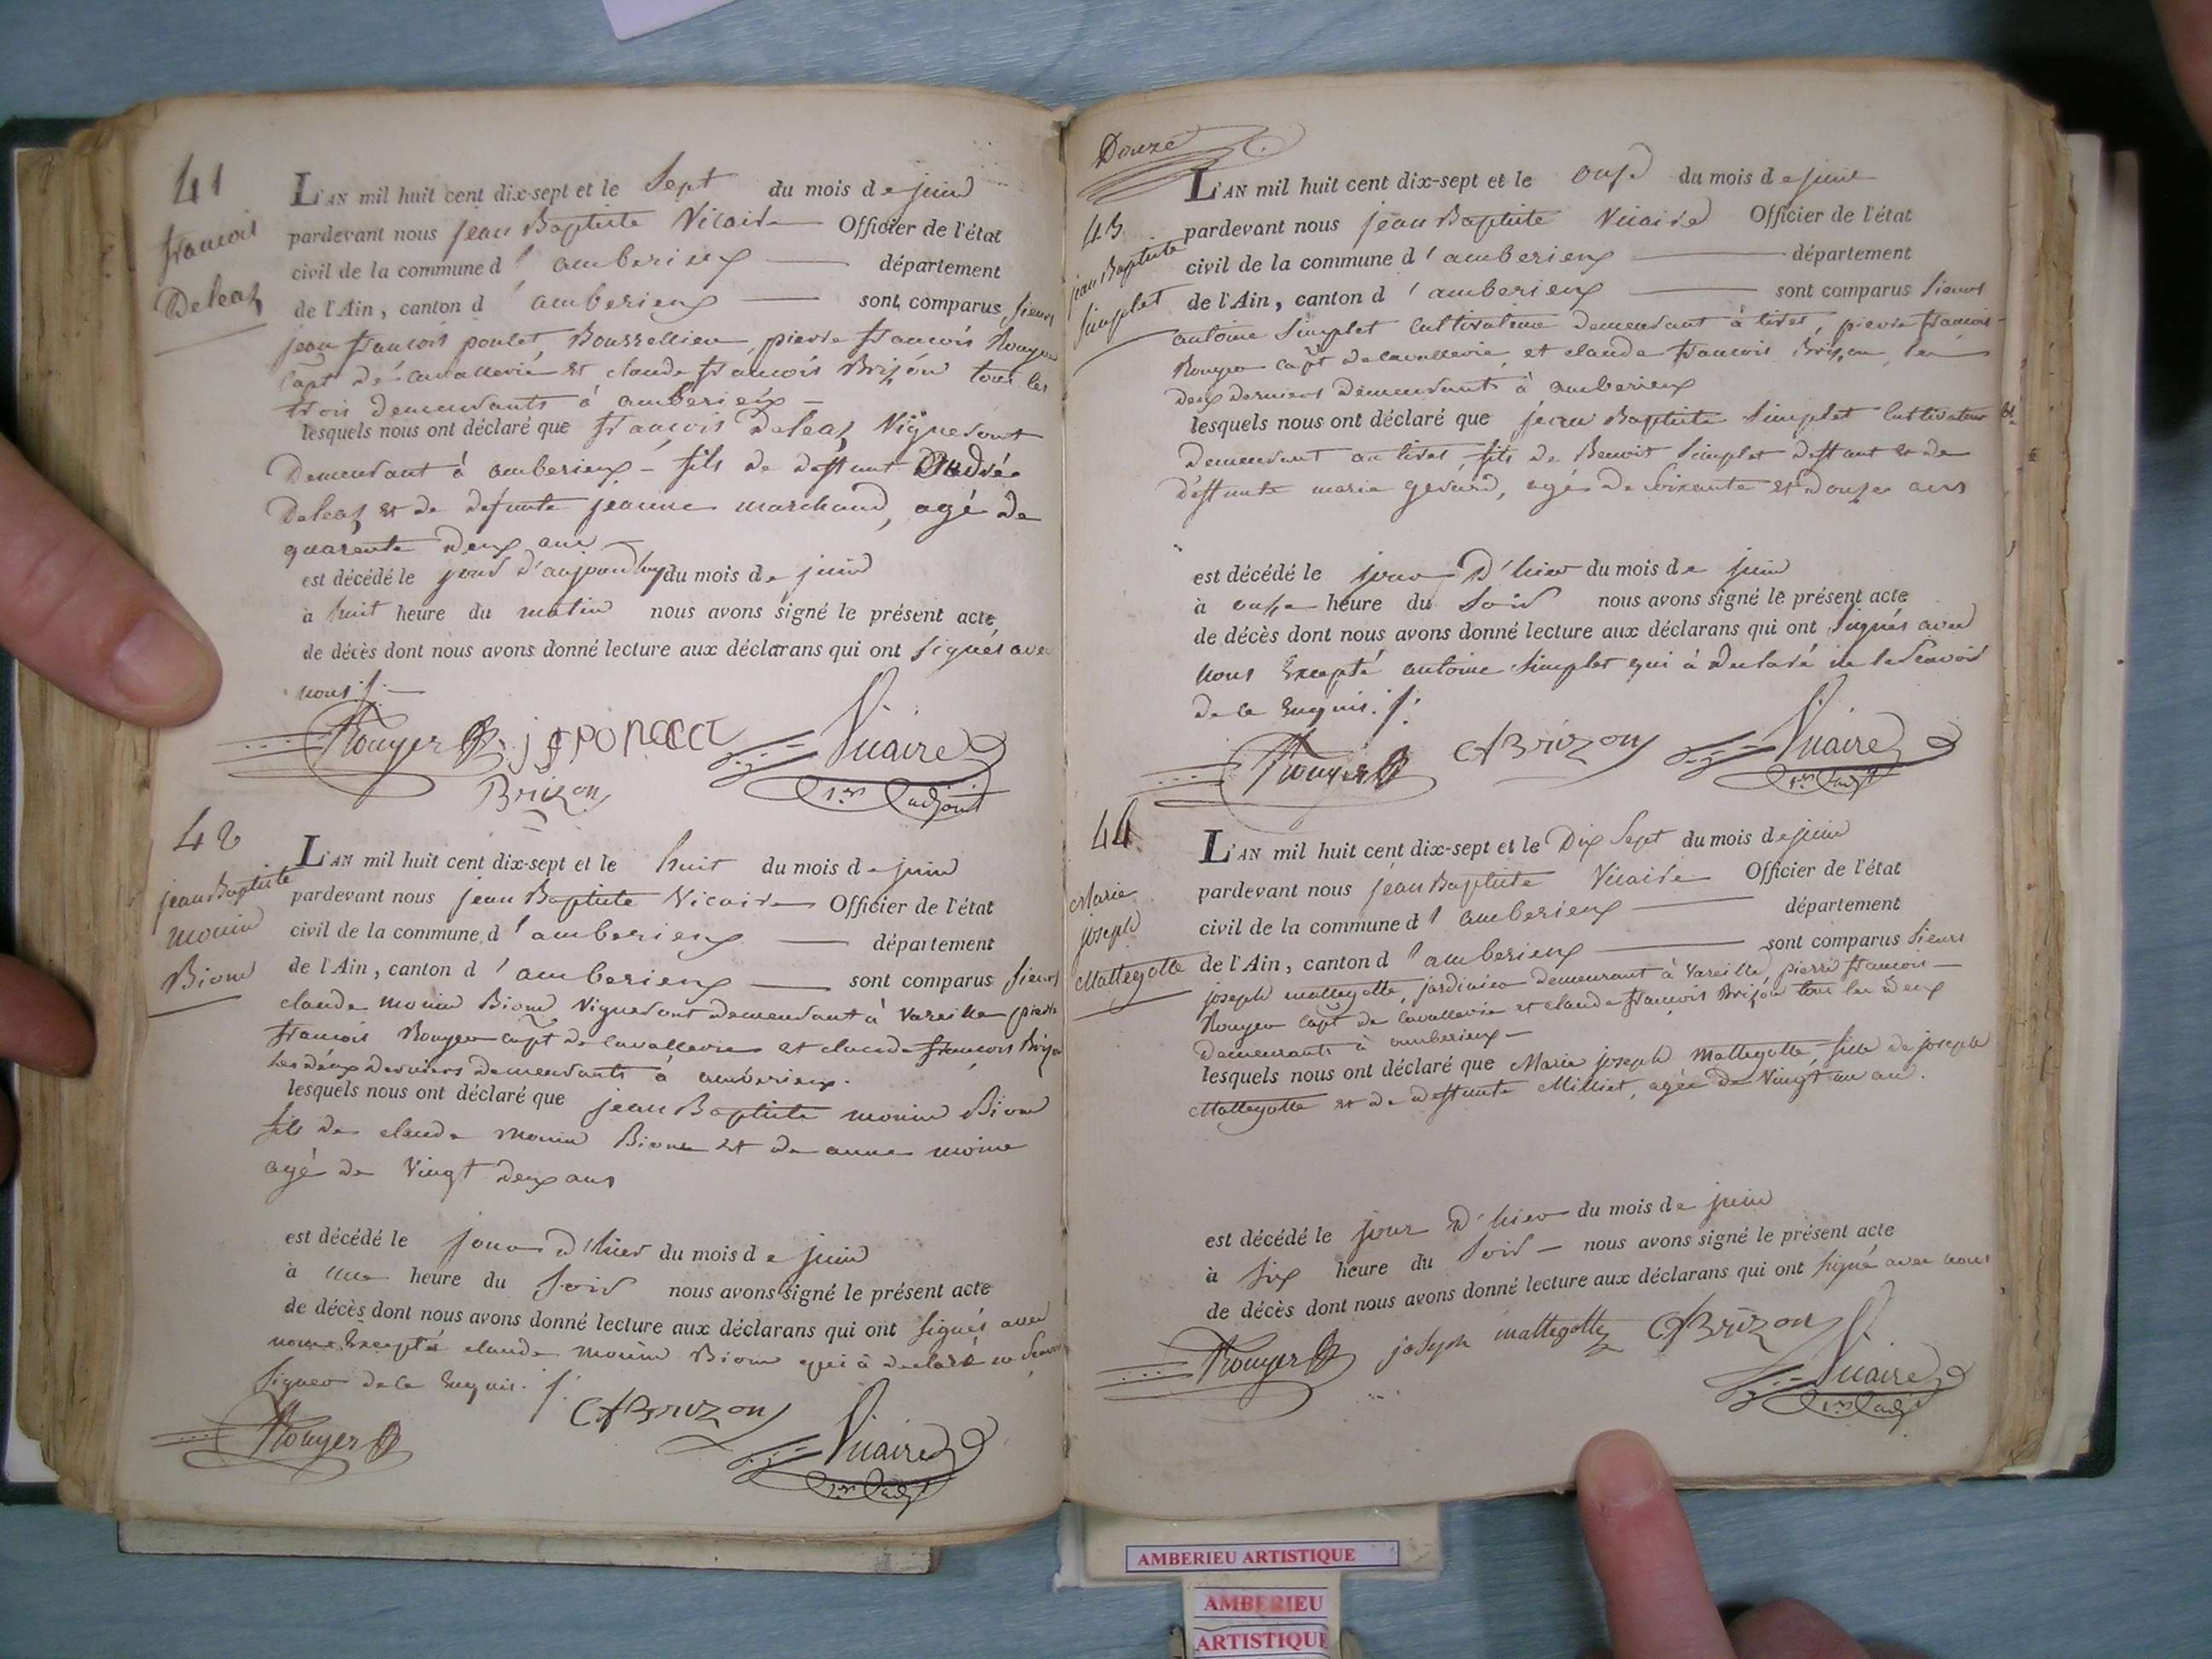 41
francois
Deleaz
L'AN mil huit cent dix-sept et le Sept du mois de juin
pardevant nous jean Baptiste Vicaire Officier de l'état
civil de la commune d'amberieux département
de l'Ain, canton d'amberieux sont comparus sieurs
jean francois poncet Bourrellier, pierre francois Rouyer
capt de cavallerie et claude francois Brizon tous les
trois demeurants à amberieux
lesquels nous ont déclaré que francois Deleaz Vigneront
demeurant à amberieux fils de deffunt André
Deleaz et de défunte jeanne marchand, agé de
quarente deux ans
est décédé le jour d'aujourdhuy du mois de juin
à huit heure du matin nous avons signé le présent acte
de décès dont nous avons donné lecture aux déclarans qui ont signés avec
nous
Rouyer jf poncet Vicaire
Brizon 1er adjoint
42
jean Baptiste
monin
Biom
L'AN mil huit cent dix-sept et le huit du mois de juin
pardevant nous jean Baptiste Vicaire Officier de l'état
civil de la commune d'amberieux département
de l'Ain, canton d'amberieux sont comparus sieurs
claude monin Biom, Vigneront demeurant à Vareille pierre
francois Rouyer capt de cavallerie et claude francois Brizon
les deux derniers demeurants à amberieux.
lesquels nous ont déclaré que jean Baptiste monin Biom
fils de claude monin Biom et de anne moine
agé de Vingt deux ans
est décédé le jour d'hier du mois de juin
à une heure du soir nous avons signé le présent acte
de décès dont nous avons donné lecture aux déclarans qui ont signés avec
nous Excepté claude monin Biom qui à declaré ne scavoir
signer de ce Enquis.
Rouyer CfBrizon Vicaire
1er adjt
Douze
43
jean Baptiste
simplet
L'AN mil huit cent dix-sept et le onze du mois de juin
pardevant nous jean Baptiste Vicaire Officier de l'état
civil de la commune d'amberieux département
de l'Ain, canton d'amberieux sont comparus sieurs
antoine simplet cultivateur demeurant à tiret, pierre francois
Rouyer capt de cavallerie, et claude francois Brizon, les
deux derniers demeurants à amberieux
lesquels nous ont déclaré que jean Baptiste simplet cultivateur
demeurant au tiret, fils de Benoit simplet deffunt et de
deffunte marie gerard, agé de soixante et douze ans
est décédé le jour d'hier du mois de juin
à onze heure du soir nous avons signé le présent acte
de décès dont nous avons donné lecture aux déclarans qui ont signés avec
nous Excepté antoine simplet qui à declaré ne le scavoir
de ce Enquis.
Rouyer CfBrizon Vicaire
1er adjt
44
Marie
joseph
Mattegotte
L'AN mil huit cent dix-sept et le Dix sept du mois de juin
pardevant nous jean Baptiste Vicaire Officier de l'état
civil de la commune d'amberieux département
de l'Ain, canton d'amberieux sont comparus sieurs
joseph mattegotte, jardinier demeurant à Vareille, pierre francois
Rouyer capt de cavallerie et claude francois Brizon tous les deux
demeurants à amberieux
lesquels nous ont déclaré que Marie joseph Mattegotte, fille de joseph
Mattegotte et de deffunte Milliet, agée de Vingt un an.
est décédé le jour d'hier du mois de juin
à six heure du soir nous avons signé le présent acte
de décès dont nous avons donné lecture aux déclarans qui ont signé avec nous
Rouyer joseph mattegotte CfBrizon
Vicaire
1er adjt
AMBERIEU ARTISTIQUE
AMBERIEU
ARTISTIQUE